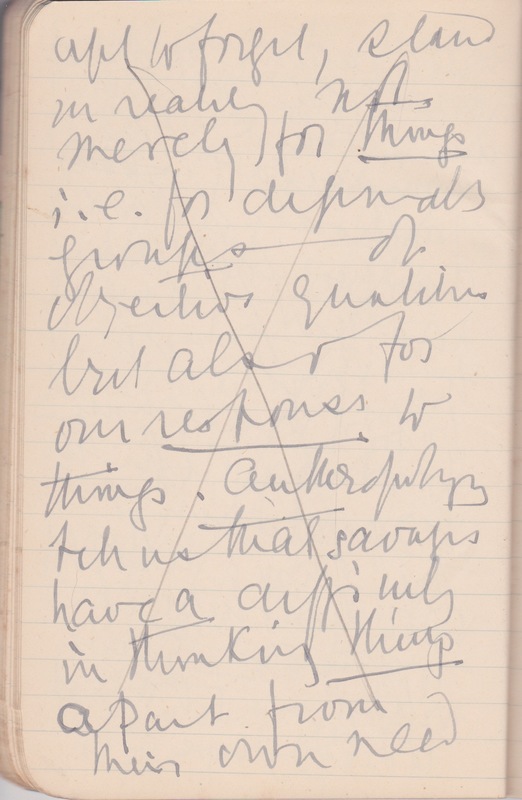 apt to forget, stand
in reality not
merely for things
i.e. for
groups of
objective qualities
but also for
our responses to
things. Anthropology
tell us that savages
have a difficulty
in thinking things
apart from
their own need